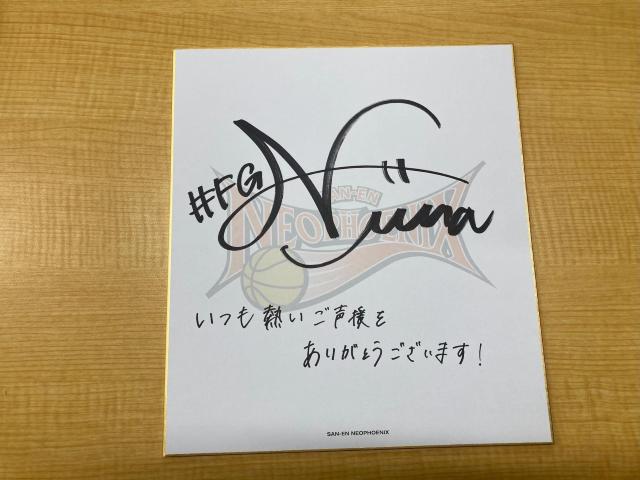 #FG Niina
SAN-EN
NEOPHOENIX
いつも熱いご声援を
ありがとうございます!
SAN-EN NEOPHOENIX